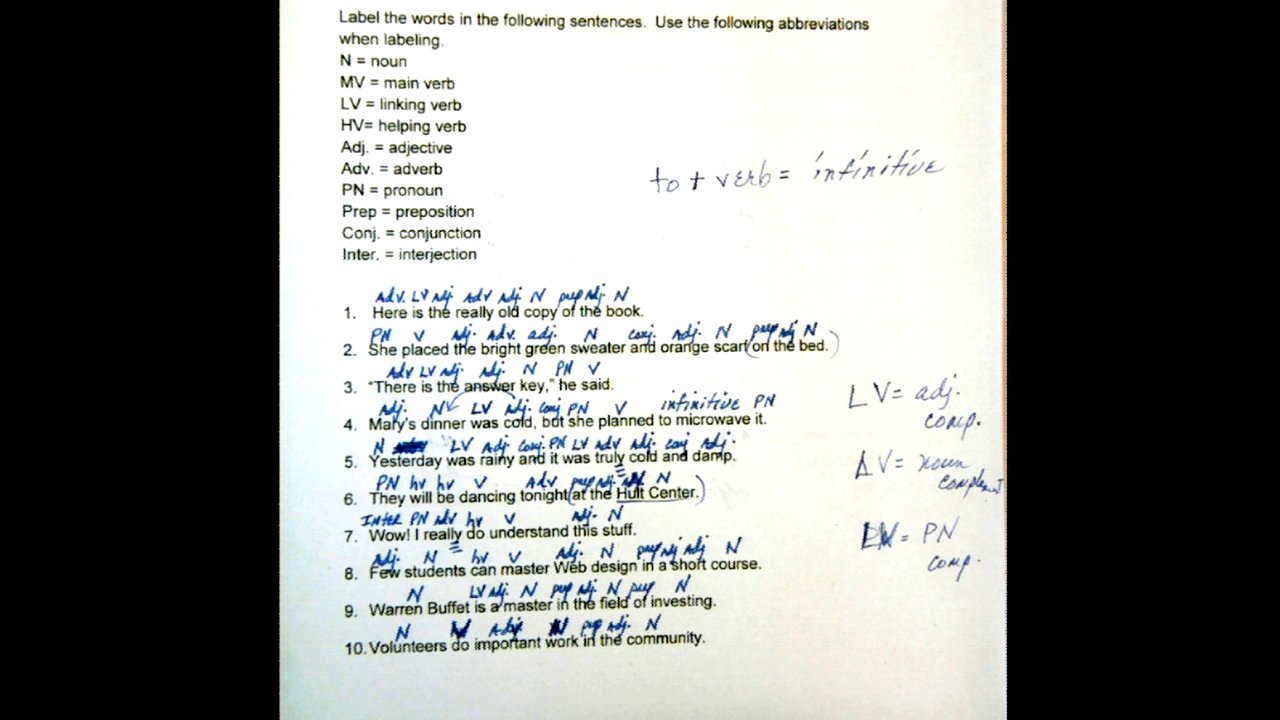 Label the words in the following sentences. Use the following abbreviations
when labeling.
N = noun
MV = main verb
LV = linking verb
HV= helping verb
Adj. = adjective
Adv. = adverb
PN = pronoun
Prep = preposition
Conj. = conjunction
Inter. = interjection
to + verb = infinitive
Adv. LV Adj Adv Adj N prep Adj N
1. Here is the really old copy of the book.
PN V Adj. Adv. adj. N conj. Adj. N prep Adj N
2. She placed the bright green sweater and orange scarf (on the bed.)
Adv LV Adj. Adj. N PN V
3. "There is the answer key," he said.
Adj. N LV Adj. conj PN V infinitive PN
4. Mary's dinner was cold, but she planned to microwave it.
N LV Adj conj. PN LV Adv Adj. conj Adj.
5. Yesterday was rainy and it was truly cold and damp.
PN hv hv V Adv prep Adj. N
6. They will be dancing tonight (at the Hult Center.)
Inter PN Adv hv V Adj. N
7. Wow! I really do understand this stuff.
Adj. N hv V Adj. N prep Adj Adj N
8. Few students can master Web design in a short course.
N LV Adj. N prep Adj N prep N
9. Warren Buffet is a master in the field of investing.
N V Adj N prep Adj. N
10. Volunteers do important work in the community.
LV= adj.
comp.
LV= noun
complement
LV= PN
comp.